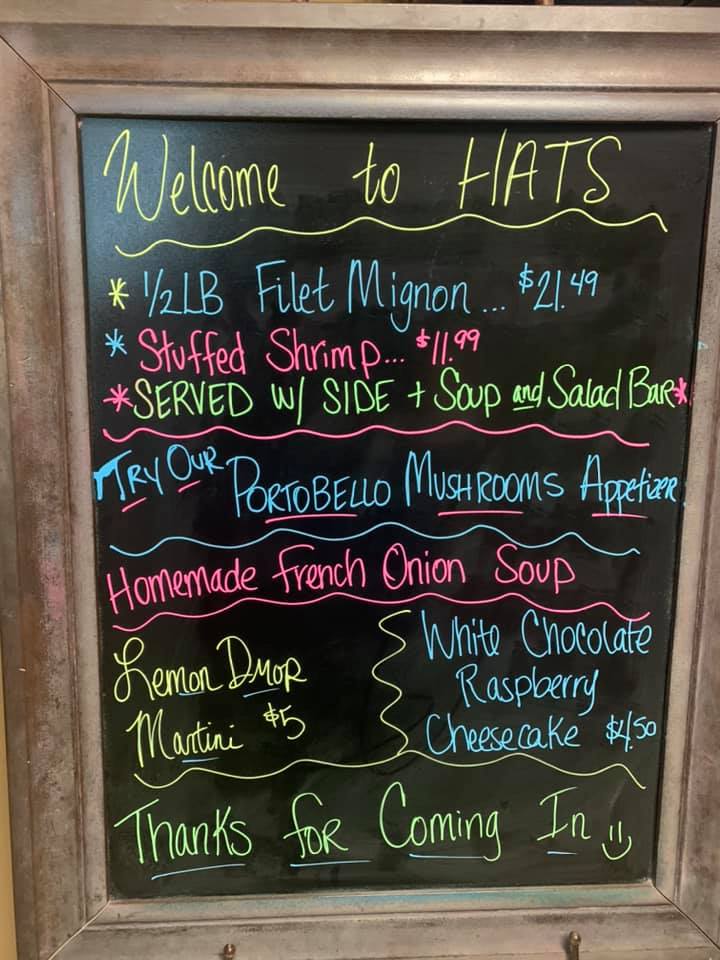 Welcome to HATS
* 1/2LB Filet Mignon... $21.49
* Stuffed Shrimp... $11.99
*SERVED W/ SIDE + Soup and Salad Bar*
Try Our Portobello Mushrooms Appetizer
Homemade French Onion Soup
Lemon Drop
Martini $5
White Chocolate
Raspberry
Cheesecake $4.50
Thanks for Coming In